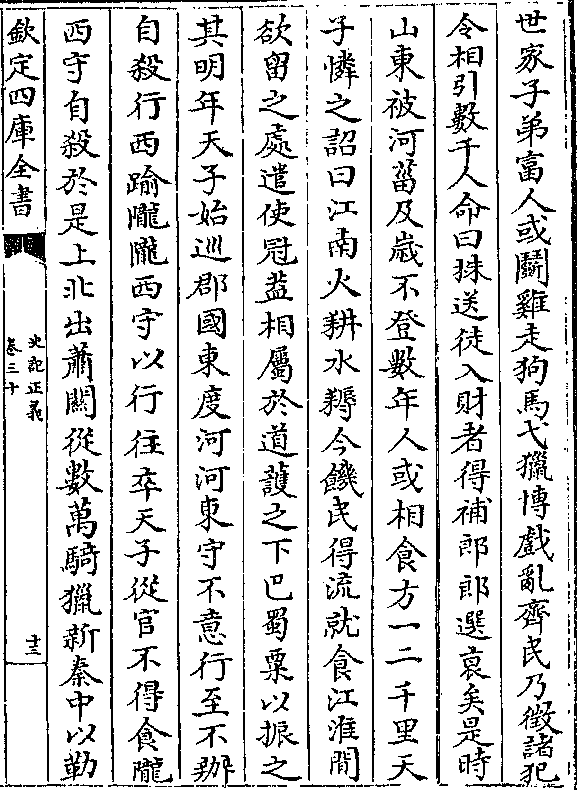 世家子弟富人或鬭雞走狗馬弋獵博戲亂齊民乃徵諸犯
令相引數千人命曰株送徒入財者得補郎郎選衰矣是時
山東被河菑及嵗不登數年人或相食方一二千里天
子憐之詔曰江南火耕水耨令饑民得流就食江淮間
欲留之處遣使冠葢相屬於道䕶之下巴蜀粟以振之
其明年天子始巡郡國東度河河東守不意行至不辦
自殺行西踰隴隴西守以行往卒天子從官不得食隴
西守自殺於是上北出蕭闗從數萬騎獵新秦中以勒
欽定四庫全書
史記正義
卷三十
十三